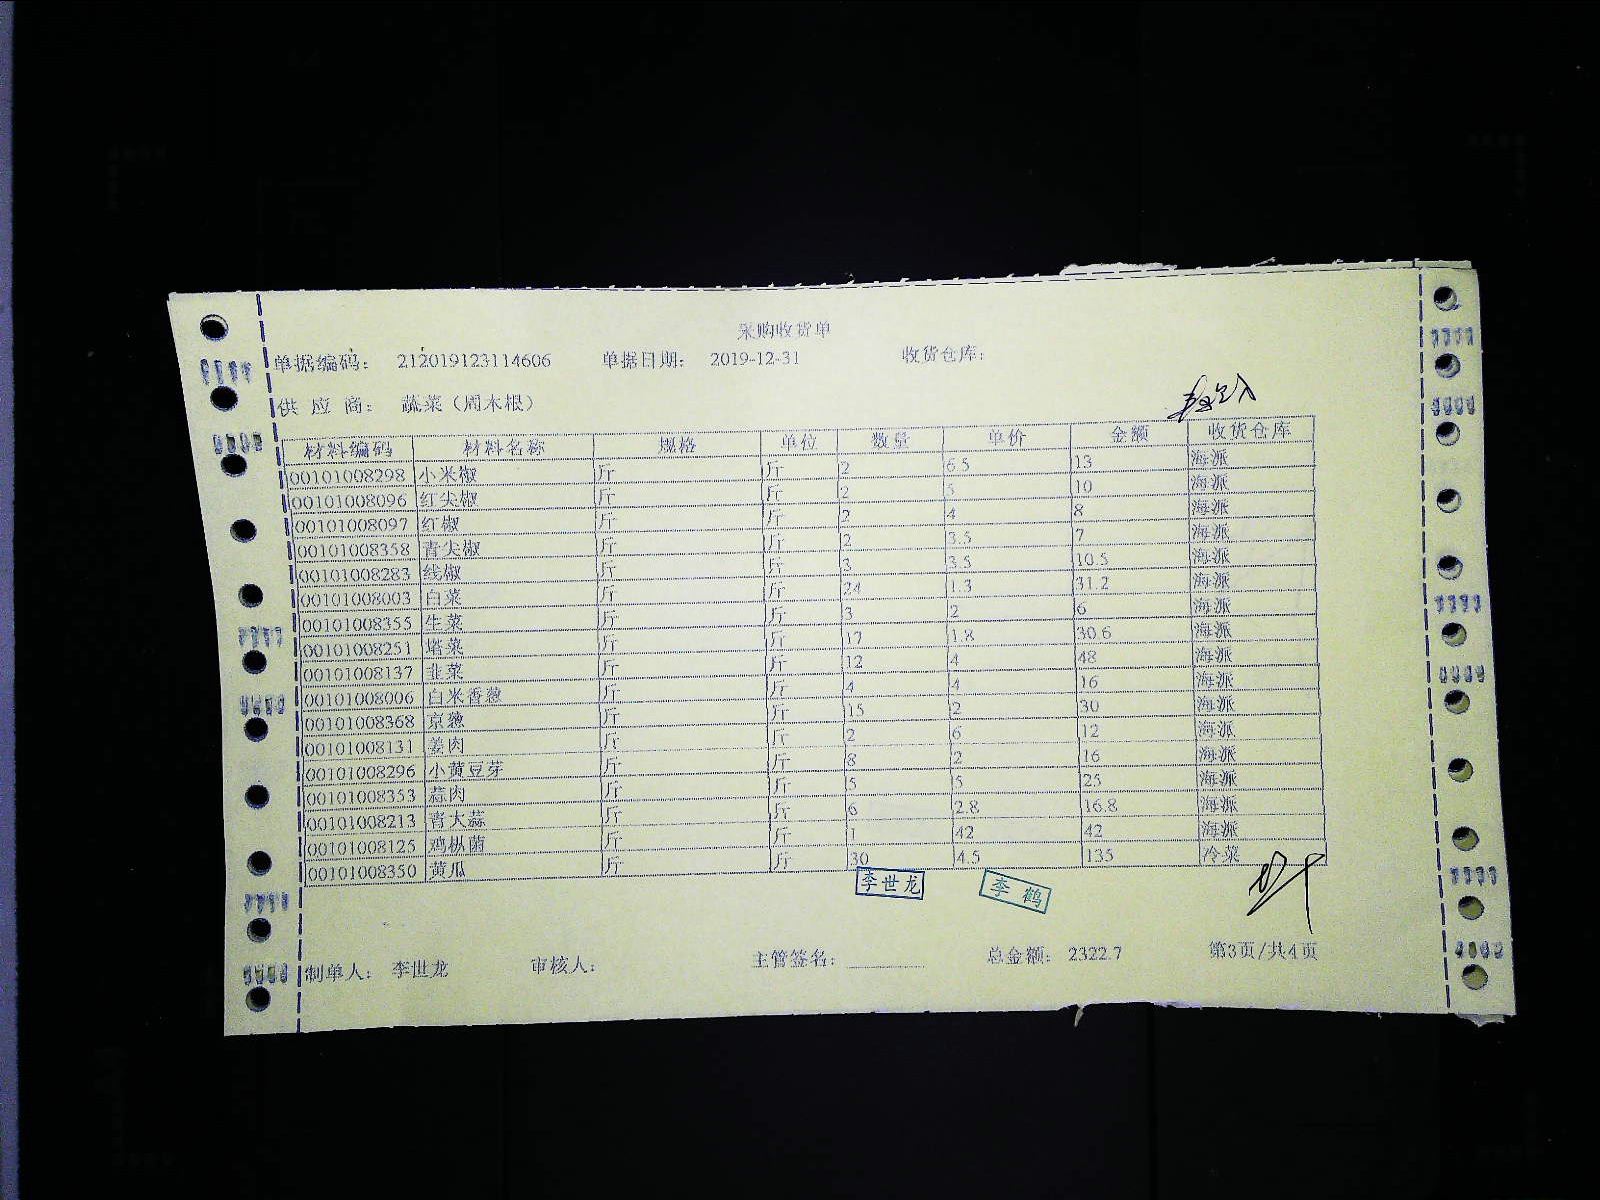 采购收货单
单据编码： 212019123114606 单据日期： 2019-12-31 收货仓库：
供 应 商： 蔬菜（周木根）
材料编码 材料名称 规格 单位 数量 单价 金额 收货仓库
00101008298 小米椒 斤 斤 2 6.5 13 海派
00101008096 红尖椒 斤 斤 2 5 10 海派
00101008097 红椒 斤 斤 2 4 8 海派
00101008358 青尖椒 斤 斤 2 3.5 7 海派
00101008283 线椒 斤 斤 3 3.5 10.5 海派
00101008003 白菜 斤 斤 24 1.3 31.2 海派
00101008355 生菜 斤 斤 3 2 6 海派
00101008251 塔菜 斤 斤 17 1.8 30.6 海派
00101008137 韭菜 斤 斤 12 4 48 海派
00101008006 白米香葱 斤 斤 4 4 16 海派
00101008368 京葱 斤 斤 15 2 30 海派
00101008131 姜肉 斤 斤 2 6 12 海派
00101008296 小黄豆芽 斤 斤 8 2 16 海派
00101008353 蒜肉 斤 斤 5 5 25 海派
00101008213 青大蒜 斤 斤 6 2.8 16.8 海派
00101008125 鸡枞菌 斤 斤 1 42 42 海派
00101008350 黄瓜 斤 斤 30 4.5 135 冷菜
李世龙 李鹤
制单人： 李世龙 审核人： 主管签名： 总金额： 2322.7 第3页/共4页